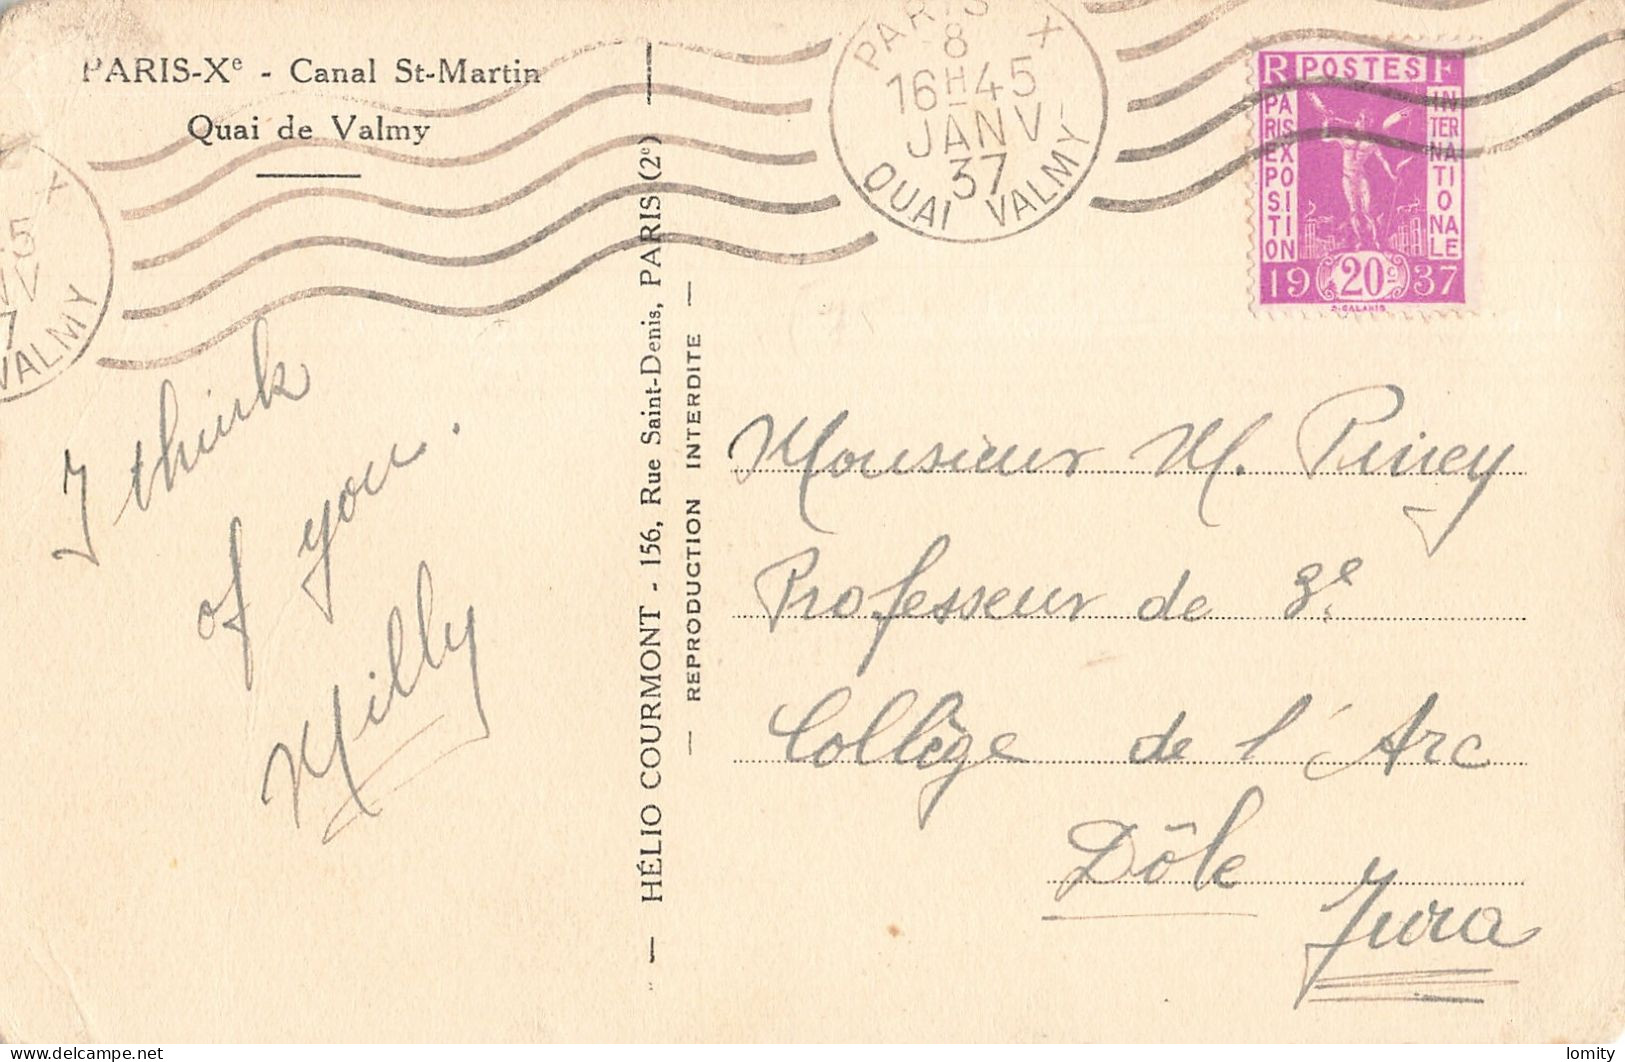 PARIS-Xe - Canal St-Martin
Quai de Valmy
I think
of you.
Milly
— HÉLIO COURMONT - 156, Rue Saint-Denis, PARIS (2e) —
— REPRODUCTION INTERDITE —
PARIS X
8
16H45
JANV
37
QUAI VALMY
X
45
NV
7
VALMY
R POSTES F
PARIS EXPOSITION
INTERNATIONALE
1937
20c
Monsieur M. Piney
Professeur de 3e
Collège de l'Arc
Dôle
Jura
delcampe.net
lomity